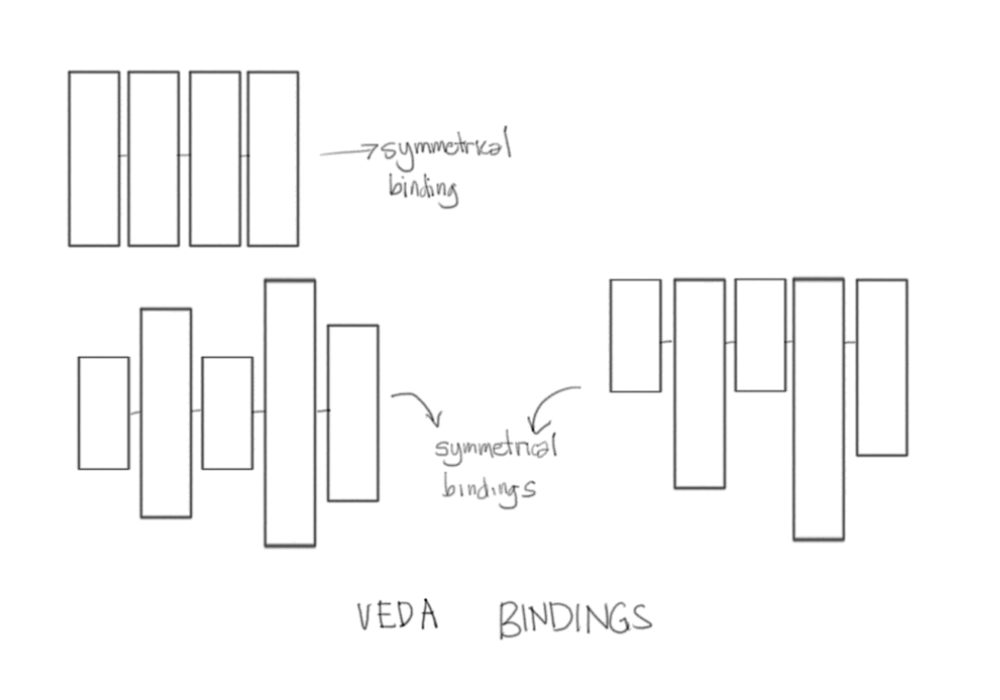 symmetrical
binding
symmetrical
bindings
VEDA BINDINGS